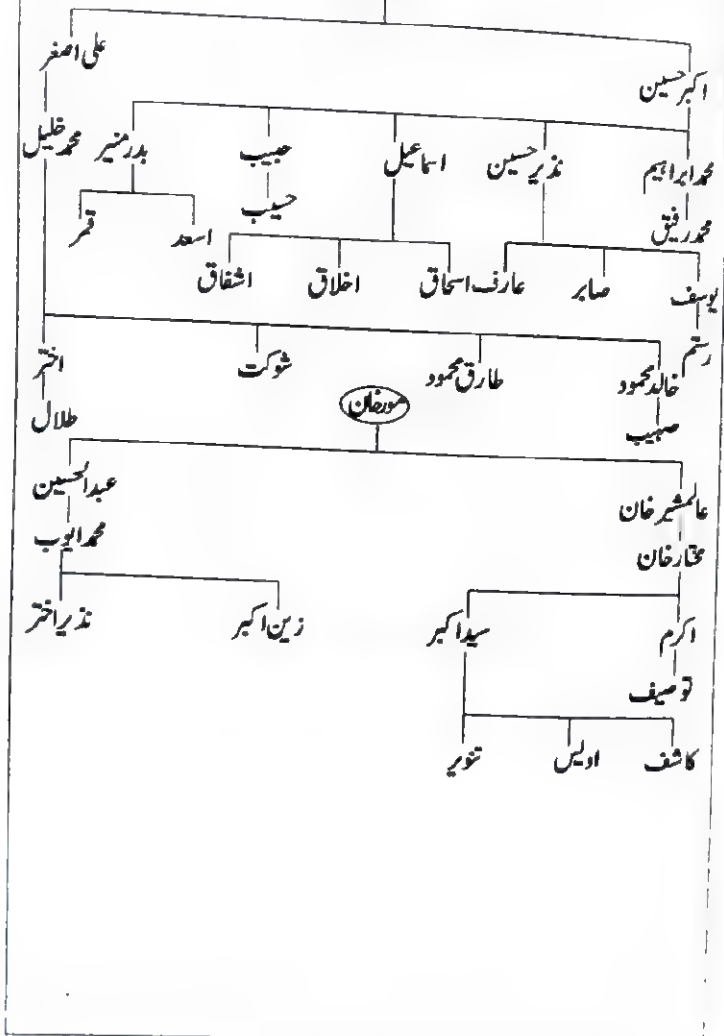 اکبر حسین علی اصغر
محمد ابراہیم نذیر حسین اسماعیل حبیب بدر منیر محمد خلیل
محمد رفیق حسیب اسعد قمر
یوسف صابر عارف اسحاق اخلاق اشفاق
رستم خالد محمود طارق محمود شوکت اختر
صہیب طلال
عالمشیر خان عبدالحسین
مختار خان محمد ایوب
اکرم سید اکبر زین اکبر نذیر اختر
توصیف
کاشف اویس تنویر